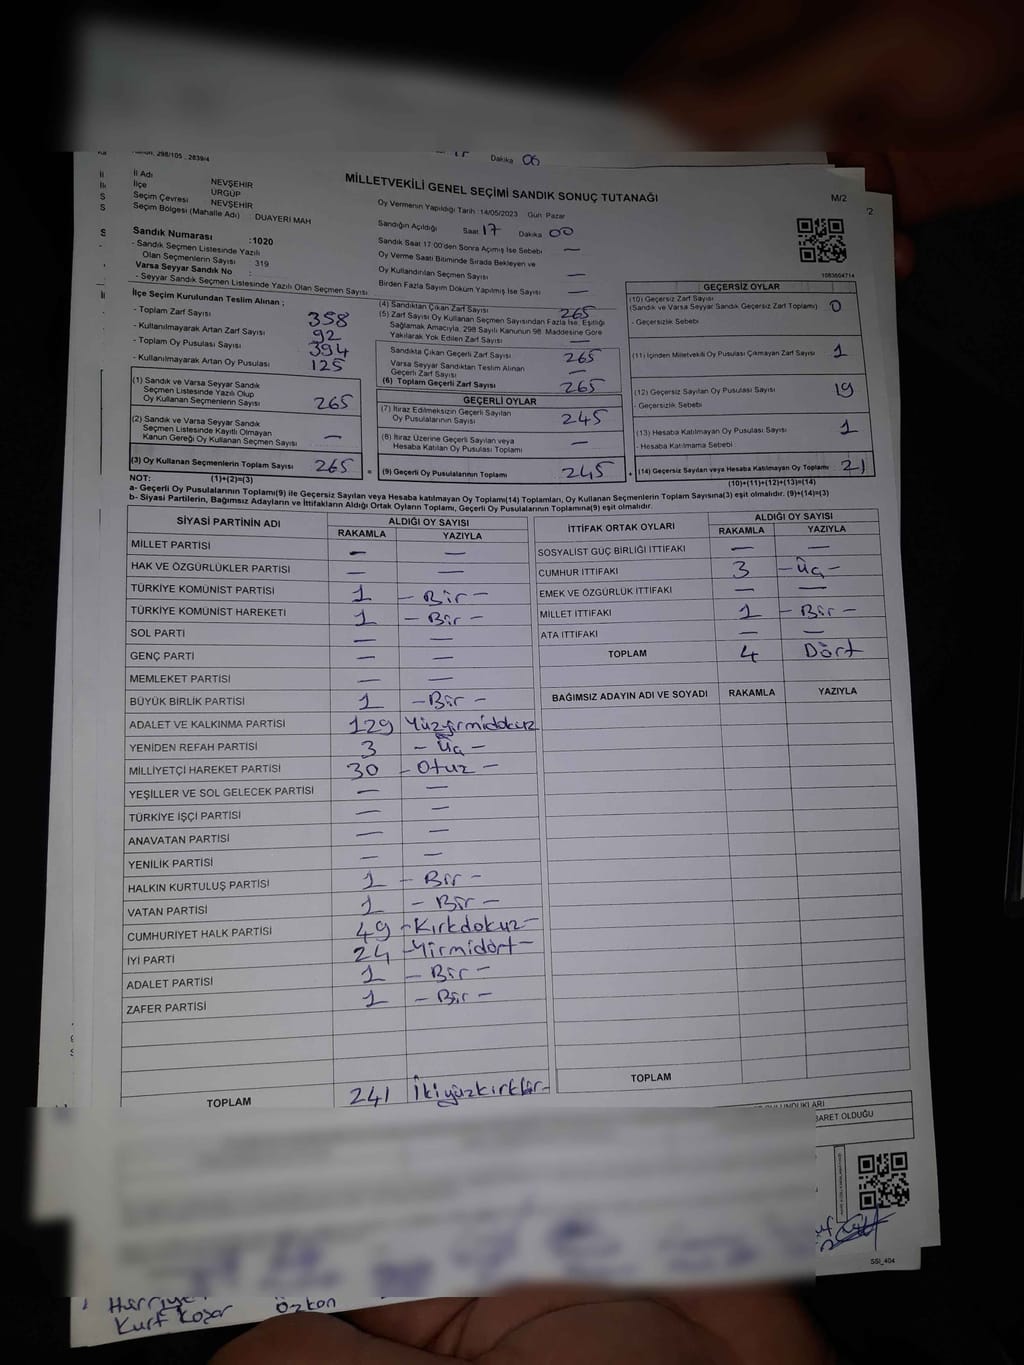 Dakika 06
298/105 _ 2839/4
MİLLETVEKİLİ GENEL SEÇİMİ SANDIK SONUÇ TUTANAĞI
M/2
İl Adı NEVŞEHİR
İlçe ÜRGÜP
Seçim Çevresi NEVŞEHİR
Seçim Bölgesi (Mahalle Adı) : DUAYERİ MAH
Oy Vermenin Yapıldığı Tarih :14/05/2023 Gün Pazar
Sandığın Açıldığı Saat 17 Dakika 00
Sandık Saat 17:00'den Sonra Açımış İse Sebebi —
Oy Verme Saati Bitiminde Sırada Bekleyen ve
Oy Kullandırılan Seçmen Sayısı —
Birden Fazla Sayım Döküm Yapılmış İse Sayısı —
1083604714
Sandık Numarası :1020
- Sandık Seçmen Listesinde Yazılı
Olan Seçmenlerin Sayısı 319
Varsa Seyyar Sandık No
- Seyyar Sandık Seçmen Listesinde Yazılı Olan Seçmen Sayısı
İlçe Seçim Kurulundan Teslim Alınan ;
- Toplam Zarf Sayısı 358
- Kullanılmayarak Artan Zarf Sayısı 92
- Toplam Oy Pusulası Sayısı 394
- Kullanılmayarak Artan Oy Pusulası 125
(1) Sandık ve Varsa Seyyar Sandık
Seçmen Listesinde Yazılı Olup
Oy Kullanan Seçmenlerin Sayısı 265
(2) Sandık ve Varsa Seyyar Sandık
Seçmen Listesinde Kayıtlı Olmayan
Kanun Gereği Oy Kullanan Seçmen Sayısı —
(3) Oy Kullanan Seçmenlerin Toplam Sayısı 265
(4) Sandıktan Çıkan Zarf Sayısı 265
(5) Zarf Sayısı Oy Kullanan Seçmen Sayısından Fazla İse, Eşitliği
Sağlamak Amacıyla, 298 Sayılı Kanunun 98. Maddesine Göre
Yakılarak Yok Edilen Zarf Sayısı —
Sandıkta Çıkan Geçerli Zarf Sayısı 265
Varsa Seyyar Sandıktan Teslim Alınan
Geçerli Zarf Sayısı —
(6) Toplam Geçerli Zarf Sayısı 265
GEÇERLİ OYLAR
(7) İtiraz Edilmeksizin Geçerli Sayılan
Oy Pusulalarının Sayısı 245
(8) İtiraz Üzerine Geçerli Sayılan veya
Hesaba Katılan Oy Pusulası Toplamı —
= (9) Geçerli Oy Pusulalarının Toplamı 245
GEÇERSİZ OYLAR
(10) Geçersiz Zarf Sayısı
(Sandık ve Varsa Seyyar Sandık Geçersiz Zarf Toplamı) 0
- Geçersizlik Sebebi
(11) İçinden Milletvekili Oy Pusulası Çıkmayan Zarf Sayısı 1
(12) Geçersiz Sayılan Oy Pusulası Sayısı 19
- Geçersizlik Sebebi
(13) Hesaba Katılmayan Oy Pusulası Sayısı 1
- Hesaba Katılmama Sebebi
+ (14) Geçersiz Sayılan veya Hesaba Katılmayan Oy Toplamı 21
NOT: (1)+(2)=(3)
(10)+(11)+(12)+(13)=(14)
a- Geçerli Oy Pusulalarının Toplamı(9) ile Geçersiz Sayılan veya Hesaba katılmayan Oy Toplamı(14) Toplamları, Oy Kullanan Seçmenlerin Toplam Sayısına(3) eşit olmalıdır. (9)+(14)=(3)
b- Siyasi Partilerin, Bağımsız Adayların ve İttifakların Aldığı Ortak Oyların Toplamı, Geçerli Oy Pusulalarının Toplamına(9) eşit olmalıdır.
SİYASİ PARTİNİN ADI ALDIĞI OY SAYISI
RAKAMLA YAZIYLA
MİLLET PARTİSİ — —
HAK VE ÖZGÜRLÜKLER PARTİSİ — —
TÜRKİYE KOMÜNİST PARTİSİ 1 - Bir -
TÜRKİYE KOMÜNİST HAREKETİ 1 - Bir -
SOL PARTİ — —
GENÇ PARTİ — —
MEMLEKET PARTİSİ — —
BÜYÜK BİRLİK PARTİSİ 1 - Bir -
ADALET VE KALKINMA PARTİSİ 129 Yüzyirmidokuz
YENİDEN REFAH PARTİSİ 3 - Üç -
MİLLİYETÇİ HAREKET PARTİSİ 30 - Otuz -
YEŞİLLER VE SOL GELECEK PARTİSİ — —
TÜRKİYE İŞÇİ PARTİSİ — —
ANAVATAN PARTİSİ — —
YENİLİK PARTİSİ — —
HALKIN KURTULUŞ PARTİSİ 1 - Bir -
VATAN PARTİSİ 1 - Bir -
CUMHURİYET HALK PARTİSİ 49 - Kırkdokuz -
İYİ PARTİ 24 - Yirmidört -
ADALET PARTİSİ 1 - Bir -
ZAFER PARTİSİ 1 - Bir -
TOPLAM 241 İkiyüzkırkbir -
İTTİFAK ORTAK OYLARI ALDIĞI OY SAYISI
RAKAMLA YAZIYLA
SOSYALİST GÜÇ BİRLİĞİ İTTİFAKI — —
CUMHUR İTTİFAKI 3 - Üç -
EMEK VE ÖZGÜRLÜK İTTİFAKI — —
MİLLET İTTİFAKI 1 - Bir -
ATA İTTİFAKI — —
TOPLAM 4 Dört
BAĞIMSIZ ADAYIN ADI VE SOYADI RAKAMLA YAZIYLA
TOPLAM
BARET OLDUĞU
SSİ_404
Özkan
Kurt Koşar